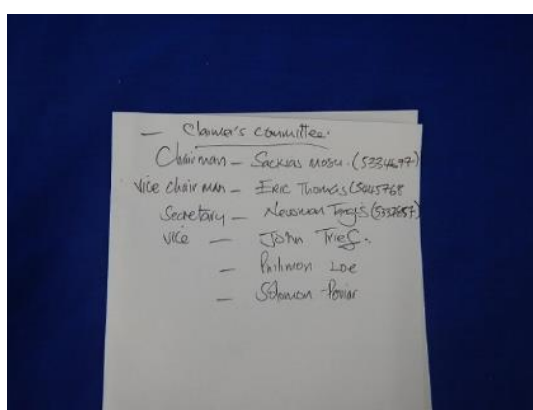 — Claimer's committee.
Chairman — Sackias Mosu. (5334697)
Vice chairman — Eric Thomas (5445768
Secretary — Newman
Vice — John Trief.
— Philimon Loe
— Solomon